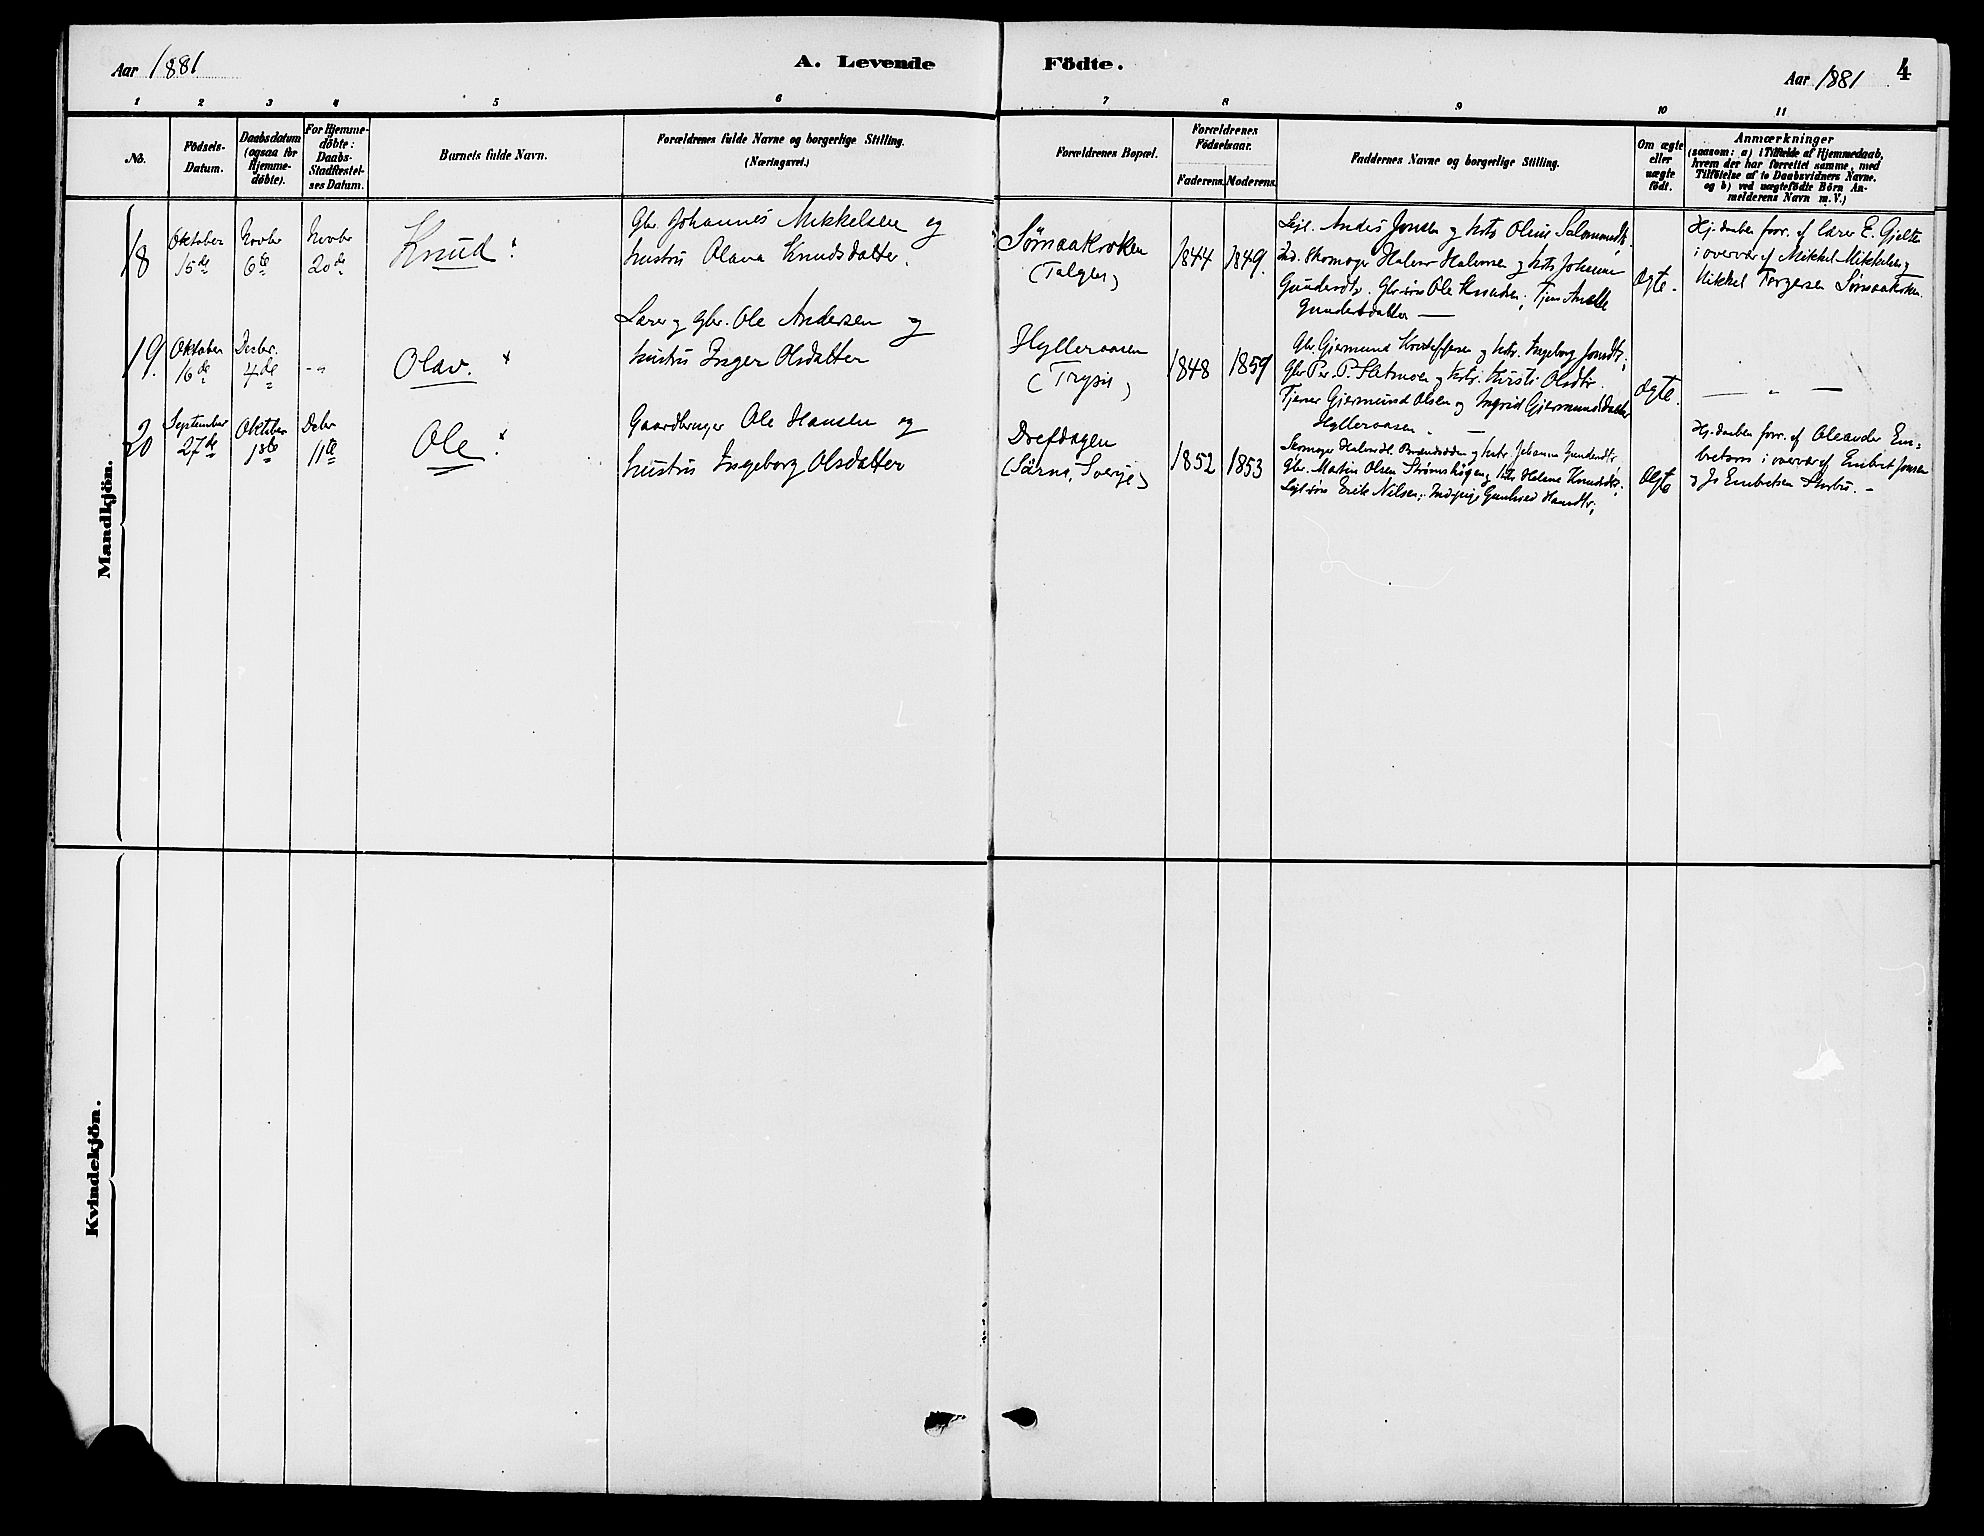 Aar 1881
A. Levende Födte.
Aar 1881
4
1 2 3 4 5 6 7 8 9 10 11
No.
Födsels-
Datum.
Daabsdatum
(ogsaa for
Hjemme-
döbte).
For Hjemme-
döbte:
Daabs-
Stadfæstel-
ses Datum.
Barnets fulde Navn.
Forældrenes fulde Navne og borgerlige Stilling.
(Næringsvei.)
Forældrenes Bopæl.
Forældrenes
Födselsaar.
Faderens. Moderens.
Faddernes Navne og borgerlige Stilling.
Om ægte
eller
uægte
født.
Anmærkninger
(saasom: a) i Tilfælde af Hjemmedaab,
hvem der har forrettet samme, med
Tilföielse af to Daabsvidners Navne.
og b) ved uægtefödte Börn An-
melderens Navn m. V.)
Mandkjön.
18
Oktober
15de
Novbr
6te
Novbr
20de
Knud
Gbr. Johannes Mikkelsen og
hustru Olava Knudsdatter.
Sømaakroken
(Tolgen)
1844
1849.
Anders Jonsen og
Skomager Halvor Halvorsen og Johanne
Ole Knudsen;
Gundersdatter —
Ægte.
Hj.daaben forr. af Lærer E. Gjelten
i overvær af Mikkel Mikkelsen og
Mikkel Torgersen Sømaakroken.
19.
Oktober
16de
Decbr.
4de
- "
Olav.
Lærer og gbr. Ole Andersen og
hustru Inger Olsdatter
Hylleraasen
(Trysil)
1848
1859
Gbr. Gjermund og Ingeborg
Gbr Per P. og Kirsti Olsdtr.
Tjener Gjermund Olsen og Ingrid Gjermundsdatter
Hylleraasen. —
Ægte.
— " —
20
September
27de
Oktober
1ste
Decbr
11te
Ole
Gaardbruger Ole Hansen og
hustru Ingeborg Olsdatter
Drefdagen
(Särna, Sverge)
1852
1853
Skomager og Johanna
Gbr. Martin Olsen og Helene
Erik Nilsen;
Ægte
Hj.daaben forr. af Em-
i overvær af Embret Jonsen
og Embretsen
Kvindekjön.